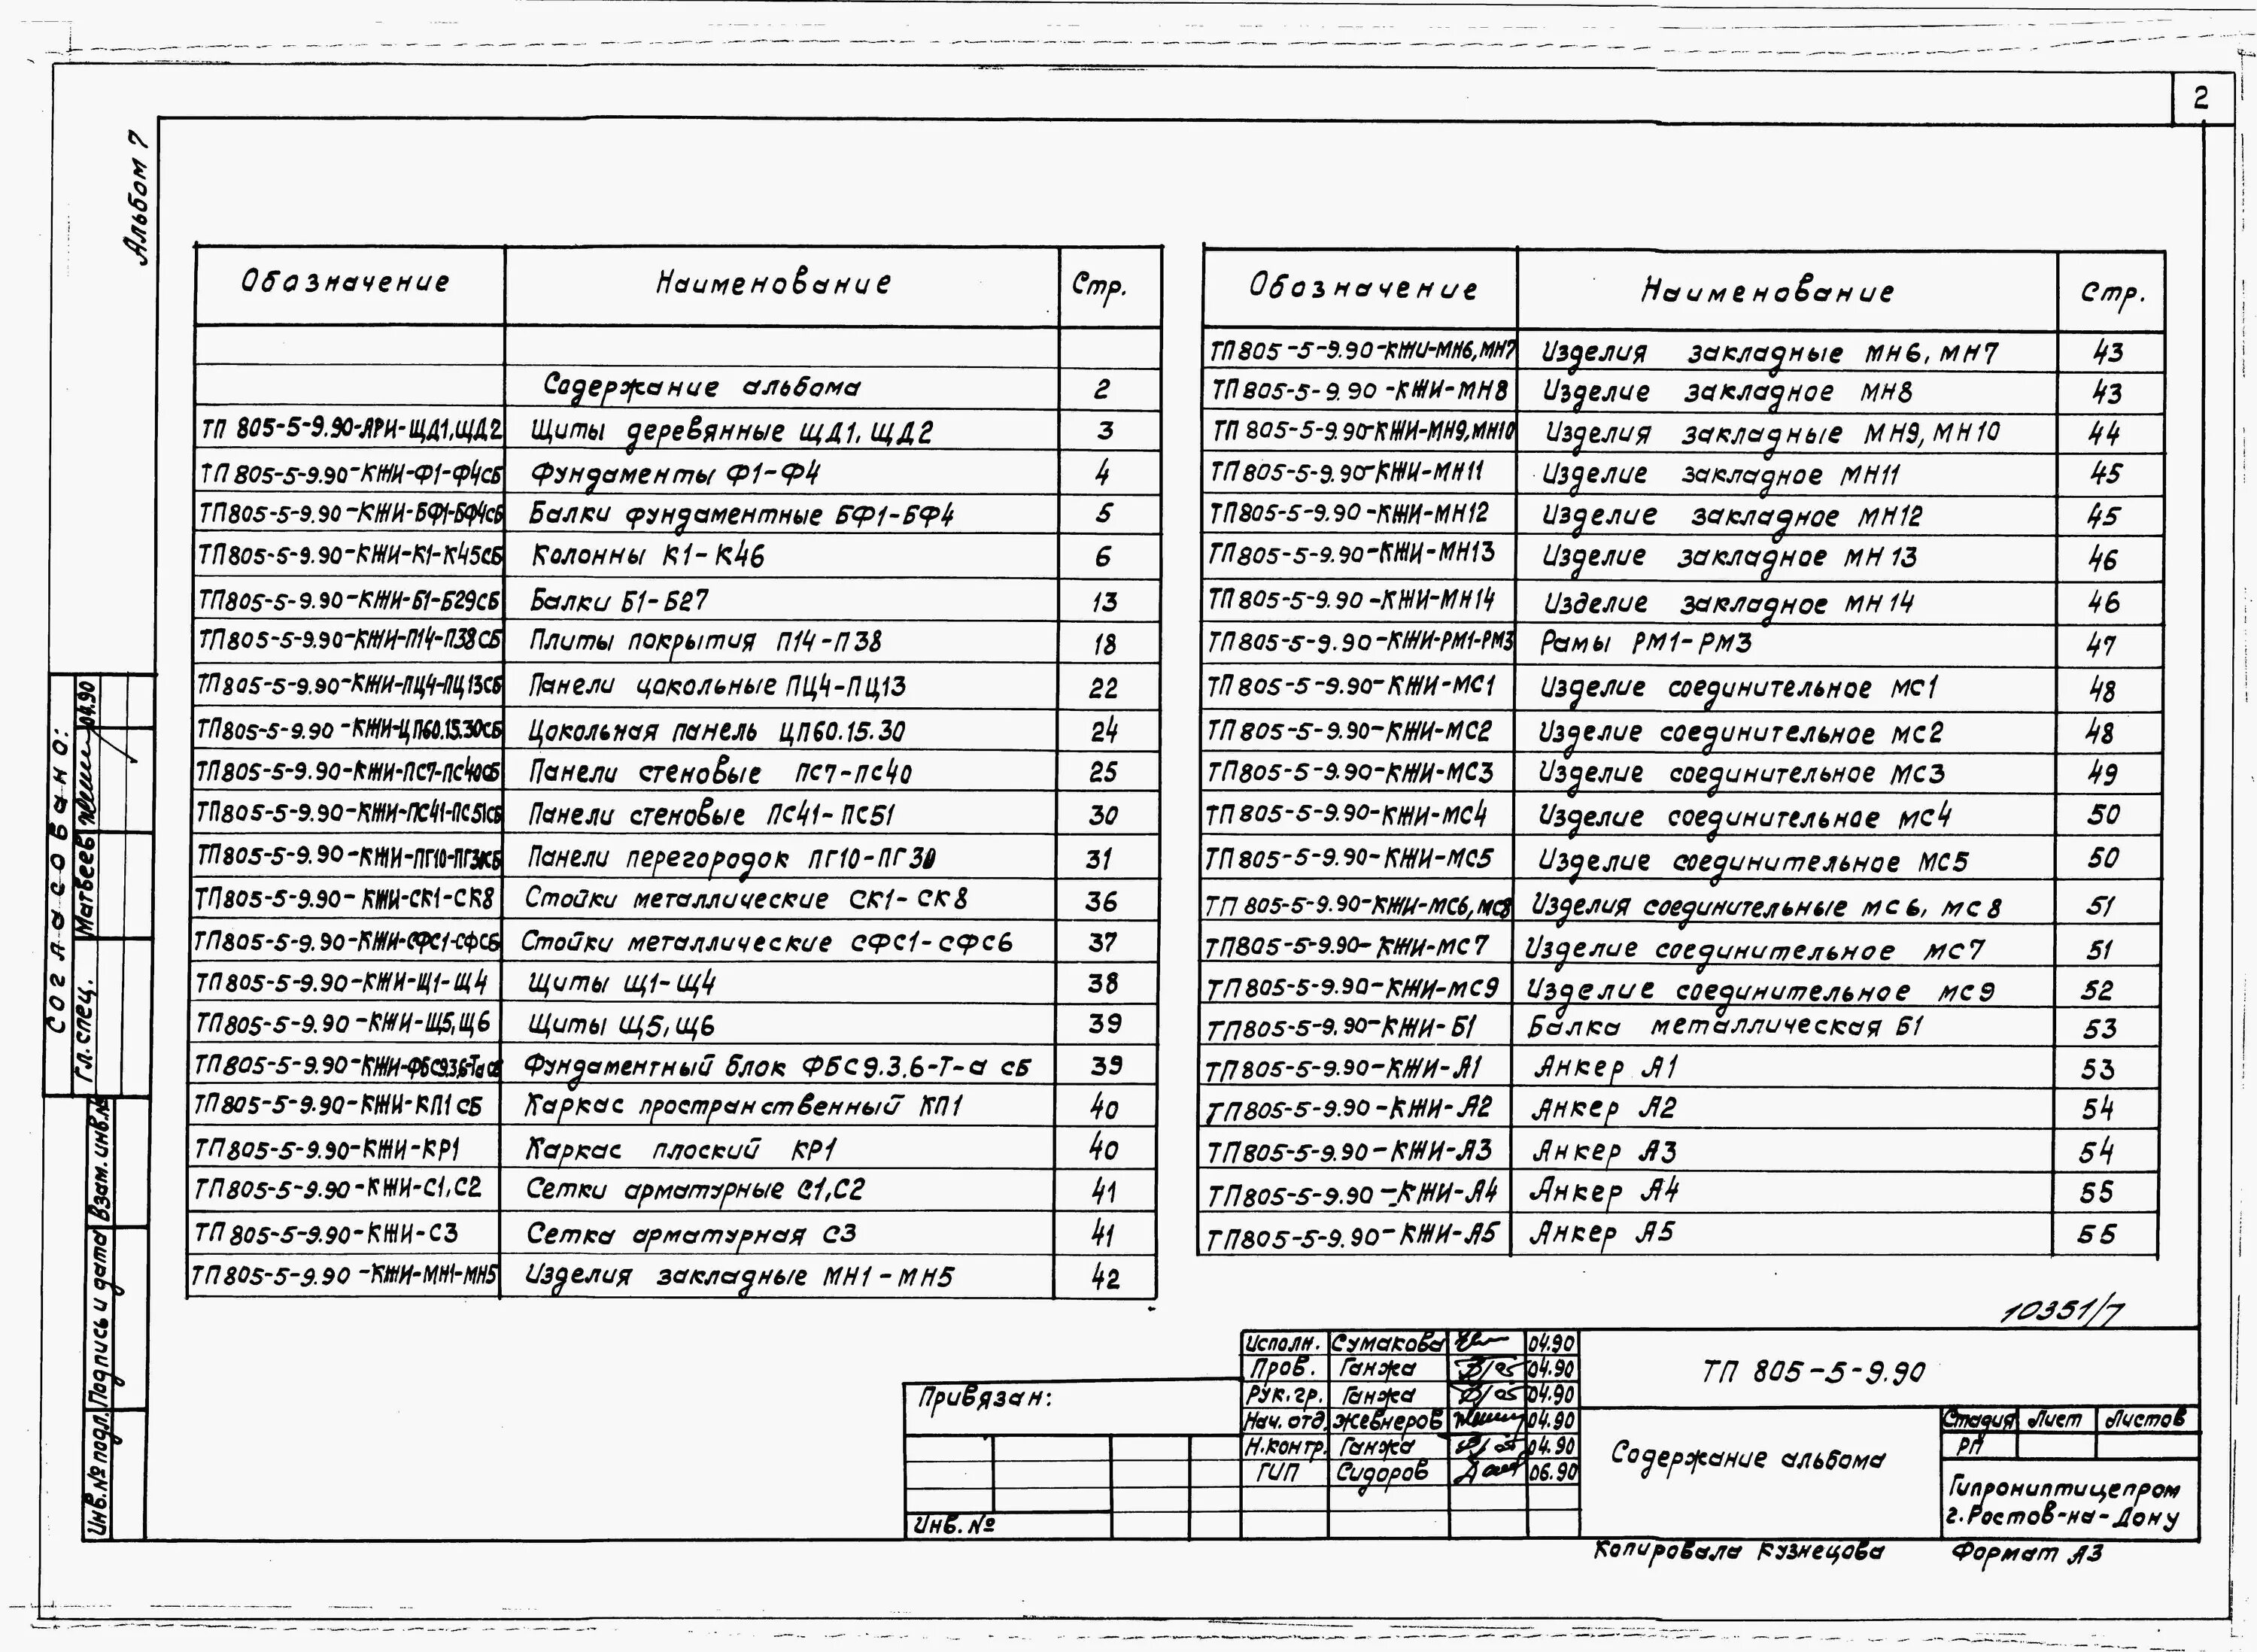 2
Альбом 7
Обозначение Наименование Стр.
Содержание альбома 2
ТП 805-5-9.90-АРИ-ЩД1,ЩД2 Щиты деревянные ЩД1, ЩД2 3
ТП 805-5-9.90-КЖИ-Ф1-Ф4СБ Фундаменты Ф1-Ф4 4
ТП805-5-9.90-КЖИ-БФ1-БФ4СБ Балки фундаментные БФ1-БФ4 5
ТП805-5-9.90-КЖИ-К1-К45СБ Колонны К1-К46 6
ТП805-5-9.90-КЖИ-Б1-Б29СБ Балки Б1-Б27 13
ТП805-5-9.90-КЖИ-П14-П38СБ Плиты покрытия П14-П38 18
ТП805-5-9.90-КЖИ-ПЦ4-ПЦ13СБ Панели цокольные ПЦ4-ПЦ13 22
ТП805-5-9.90-КЖИ-ЦП60.15.30СБ Цокольная панель ЦП60.15.30 24
ТП805-5-9.90-КЖИ-ПС7-ПС40СБ Панели стеновые ПС7-ПС40 25
ТП805-5-9.90-КЖИ-ПС41-ПС51СБ Панели стеновые ПС41-ПС51 30
ТП805-5-9.90-КЖИ- Панели перегородок ПГ10-ПГ30 31
ТП805-5-9.90-КЖИ-СК1-СК8 Стойки металлические СК1-СК8 36
ТП805-5-9.90-КЖИ-СФС1-СФС6 Стойки металлические СФС1-СФС6 37
ТП805-5-9.90-КЖИ-Щ1-Щ4 Щиты Щ1-Щ4 38
ТП805-5-9.90-КЖИ-Щ5,Щ6 Щиты Щ5,Щ6 39
ТП805-5-9.90-КЖИ-ФБС9.3.6-Т-а СБ Фундаментный блок ФБС9.3.6-Т-а СБ 39
ТП805-5-9.90-КЖИ-КП1СБ Каркас пространственный КП1 40
ТП805-5-9.90-КЖИ-КР1 Каркас плоский КР1 40
ТП805-5-9.90-КЖИ-С1,С2 Сетки арматурные С1,С2 41
ТП805-5-9.90-КЖИ-С3 Сетка арматурная С3 41
ТП805-5-9.90-КЖИ-МН1-МН5 Изделия закладные МН1-МН5 42
Обозначение Наименование Стр.
ТП805-5-9.90-КЖИ-МН6,МН7 Изделия закладные МН6, МН7 43
ТП805-5-9.90-КЖИ-МН8 Изделие закладное МН8 43
ТП805-5-9.90-КЖИ-МН9,МН10 Изделия закладные МН9, МН10 44
ТП805-5-9.90-КЖИ-МН11 Изделие закладное МН11 45
ТП805-5-9.90-КЖИ-МН12 Изделие закладное МН12 45
ТП805-5-9.90-КЖИ-МН13 Изделие закладное МН13 46
ТП805-5-9.90-КЖИ-МН14 Изделие закладное МН14 46
ТП805-5-9.90-КЖИ-РМ1-РМ3 Рамы РМ1-РМ3 47
ТП805-5-9.90-КЖИ-МС1 Изделие соединительное МС1 48
ТП805-5-9.90-КЖИ-МС2 Изделие соединительное МС2 48
ТП805-5-9.90-КЖИ-МС3 Изделие соединительное МС3 49
ТП805-5-9.90-КЖИ-МС4 Изделие соединительное МС4 50
ТП805-5-9.90-КЖИ-МС5 Изделие соединительное МС5 50
ТП805-5-9.90-КЖИ-МС6,МС8 Изделия соединительные МС6, МС8 51
ТП805-5-9.90-КЖИ-МС7 Изделие соединительное МС7 51
ТП805-5-9.90-КЖИ-МС9 Изделие соединительное МС9 52
ТП805-5-9.90-КЖИ-Б1 Балка металлическая Б1 53
ТП805-5-9.90-КЖИ-А1 Анкер А1 53
ТП805-5-9.90-КЖИ-А2 Анкер А2 54
ТП805-5-9.90-КЖИ-А3 Анкер А3 54
ТП805-5-9.90-КЖИ-А4 Анкер А4 55
ТП805-5-9.90-КЖИ-А5 Анкер А5 55
Согласовано:
Гл.спец. Матвеев 04.90
Взам.инв.№
Подпись и дата
Инв.№подл.
10351/7
Привязан:
Инв.№
Исполн. Сумакова 04.90
Пров. Ганжа 04.90
Рук.гр. Ганжа 04.90
Нач.отд. Жевнеров 04.90
Н.контр. Ганжа 04.90
ГИП Сидоров 06.90
ТП 805-5-9.90
Содержание альбома
Стадия Лист Листов
РП
Гипрониптицепром
г.Ростов-на-Дону
Копировала Кузнецова Формат А3